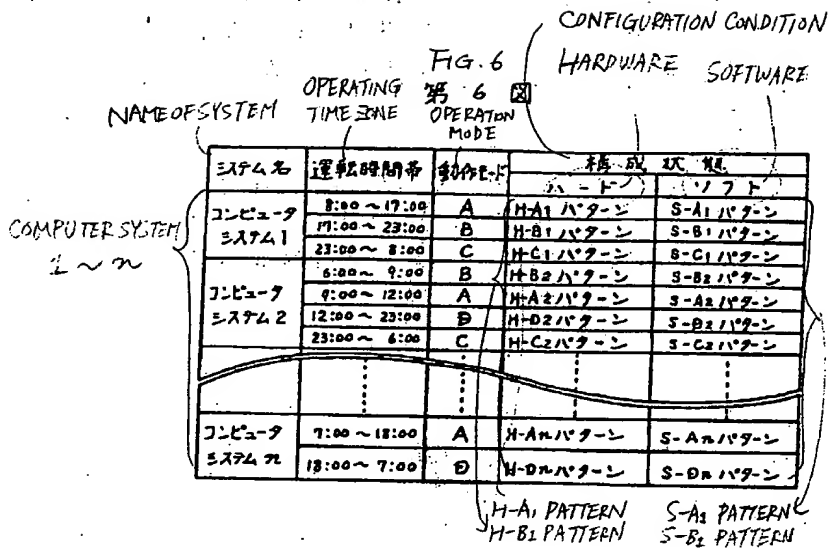 CONFIGURATION CONDITION
FIG. 6
HARDWARE
SOFTWARE
第 6 図
NAME OF SYSTEM
OPERATING TIME ZONE
OPERATION MODE
システム名 運転時間帯 動作モード 構成状態
ハード ソフト
COMPUTER SYSTEM 1 ~ n
コンピュータシステム1
8:00 ~ 17:00 A H-A1パターン S-A1パターン
17:00 ~ 23:00 B H-B1パターン S-B1パターン
23:00 ~ 8:00 C H-C1パターン S-C1パターン
コンピュータシステム2
6:00 ~ 9:00 B H-B2パターン S-B2パターン
9:00 ~ 12:00 A H-A2パターン S-A2パターン
12:00 ~ 23:00 D H-D2パターン S-B2パターン
23:00 ~ 6:00 C H-C2パターン S-C2パターン
コンピュータシステムn
7:00 ~ 18:00 A H-Anパターン S-Anパターン
18:00 ~ 7:00 D H-Dnパターン S-Dnパターン
H-A1 PATTERN S-A1 PATTERN
H-B1 PATTERN S-B1 PATTERN